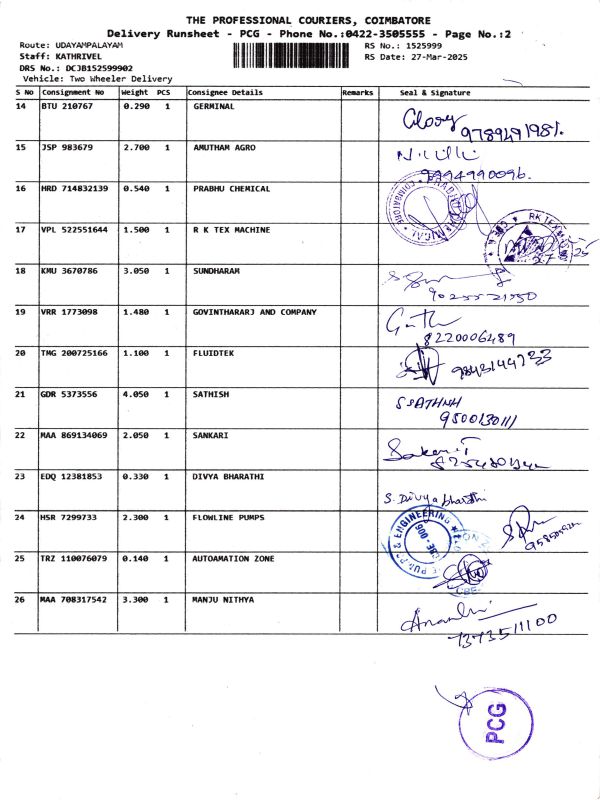 THE PROFESSIONAL COURIERS, COIMBATORE
Delivery Runsheet - PCG - Phone No.:0422-3505555 - Page No.:2
Route: UDAYAMPALAYAM RS No.: 1525999
Staff: KATHRIVEL RS Date: 27-Mar-2025
DRS No.: DCJB152599902
Vehicle: Two Wheeler Delivery
S No Consignment No Weight PCS Consignee Details Remarks Seal & Signature
14 BTU 210767 0.290 1 GERMINAL
9789491981.
15 JSP 983679 2.700 1 AMUTHAM AGRO
9994990096.
16 HRD 714832139 0.540 1 PRABHU CHEMICAL
COIMBATORE
17 VPL 522551644 1.500 1 R K TEX MACHINE
RK TEX
18 KMU 3670786 3.050 1 SUNDHARAM
19 VRR 1773098 1.480 1 GOVINTHARARJ AND COMPANY
8220006489
20 TMG 200725166 1.100 1 FLUIDTEK
9843144733
21 GDR 5373556 4.050 1 SATHISH
9500130111
22 MAA 869134069 2.050 1 SANKARI
23 EDQ 12381853 0.330 1 DIVYA BHARATHI
S. Divya bharathi
24 HSR 7299733 2.300 1 FLOWLINE PUMPS
& ENGINEERING
CBE - 006
25 TRZ 110076079 0.140 1 AUTOAMATION ZONE
26 MAA 708317542 3.300 1 MANJU NITHYA
7373511100
PCG